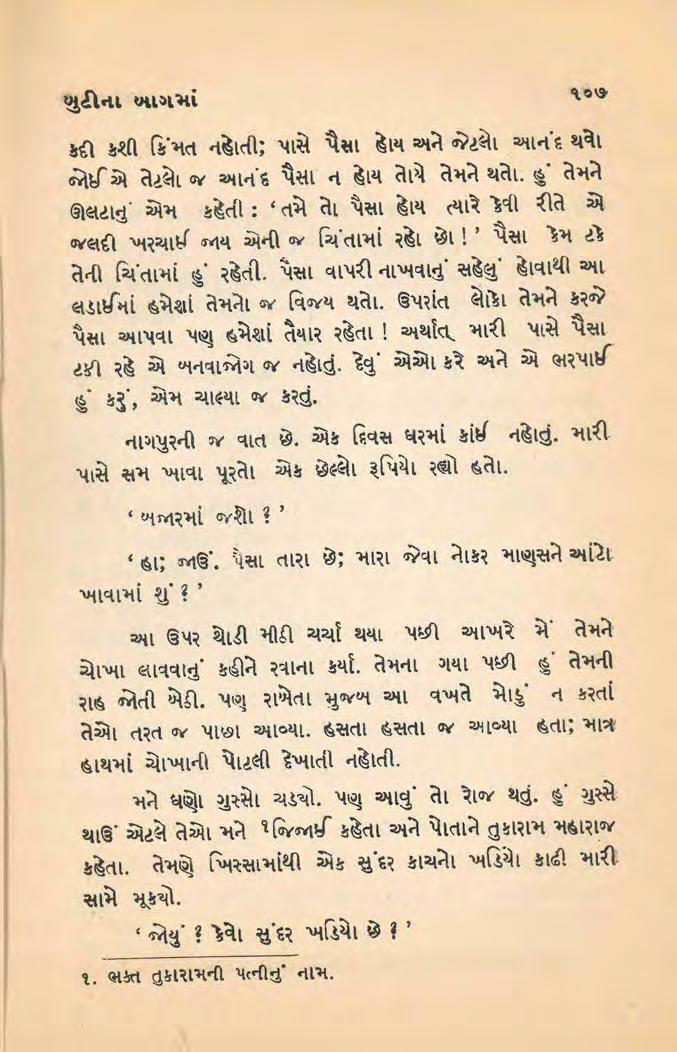 બુટીના બાગમાં ૧૦૭
કદી કશી કિંમત નહોતી; પાસે પૈસા હોય અને જેટલો આનંદ થવો
જોઈએ તેટલો જ આનંદ પૈસા ન હોય તોયે તેમને થતો. હું તેમને
ઊલટાનું એમ કહેતી : ‘તમે તો પૈસા હોય ત્યારે કેવી રીતે એ
જલદી ખરચાઈ જાય એની જ ચિંતામાં રહો છો !’ પૈસા કેમ ટકે
તેની ચિંતામાં હું રહેતી. પૈસા વાપરી નાખવાનું સહેલું હોવાથી આ
લડાઈમાં હમેશાં તેમનો જ વિજય થતો. ઉપરાંત લોકો તેમને કરજે
પૈસા આપવા પણ હમેશાં તૈયાર રહેતા ! અર્થાત્ મારી પાસે પૈસા
ટકી રહે એ બનવાજોગ જ નહોતું. દેવું એઓ કરે અને એ ભરપાઈ
હું કરું, એમ ચાલ્યા જ કરતું.
નાગપુરની જ વાત છે. એક દિવસ ઘરમાં કાંઈ નહોતું. મારી
પાસે સમ ખાવા પૂરતો એક છેલ્લો રૂપિયો રહ્યો હતો.
‘ બજારમાં જશો ? ’
‘ હા; જાઉં. પૈસા તારા છે; મારા જેવા નોકર માણસને આંટો
ખાવામાં શું ? ’
આ ઉપર થોડી મીઠી ચર્ચા થયા પછી આખરે મેં તેમને
ચોખા લાવવાનું કહીને રવાના કર્યા. તેમના ગયા પછી હું તેમની
રાહ જોતી બેઠી. પણ રાખેતા મુજબ આ વખતે મોડું ન કરતાં
તેઓ તરત જ પાછા આવ્યા. હસતા હસતા જ આવ્યા હતા; માત્ર
હાથમાં ચોખાની પોટલી દેખાતી નહોતી.
મને ઘણો ગુસ્સો ચડયો. પણ આવું તો રોજ થતું. હું ગુસ્સે
થાઉં એટલે તેઓ મને ૧જિજાઈ કહેતા અને પોતાને તુકારામ મહારાજ
કહેતા. તેમણે ખિસ્સામાંથી એક સુંદર કાચનો ખડિયો કાઢી મારી
સામે મૂકયો.
‘ જોયું ? કેવો સુંદર ખડિયો છે ? ’
૧. ભક્ત તુકારામની પત્નીનું નામ.